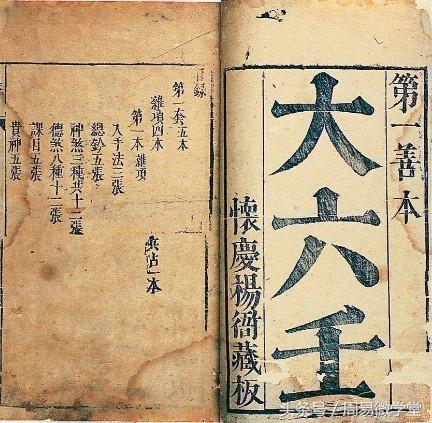 第一善本
大六壬
懷慶楊衙藏板
目錄
第一套五本
雜項四本
第一本雜項
入手法三張
總鈐五張
神煞三種共十二張
德煞八種十二張
課目五張
貴神五張
头条号/周易微学堂